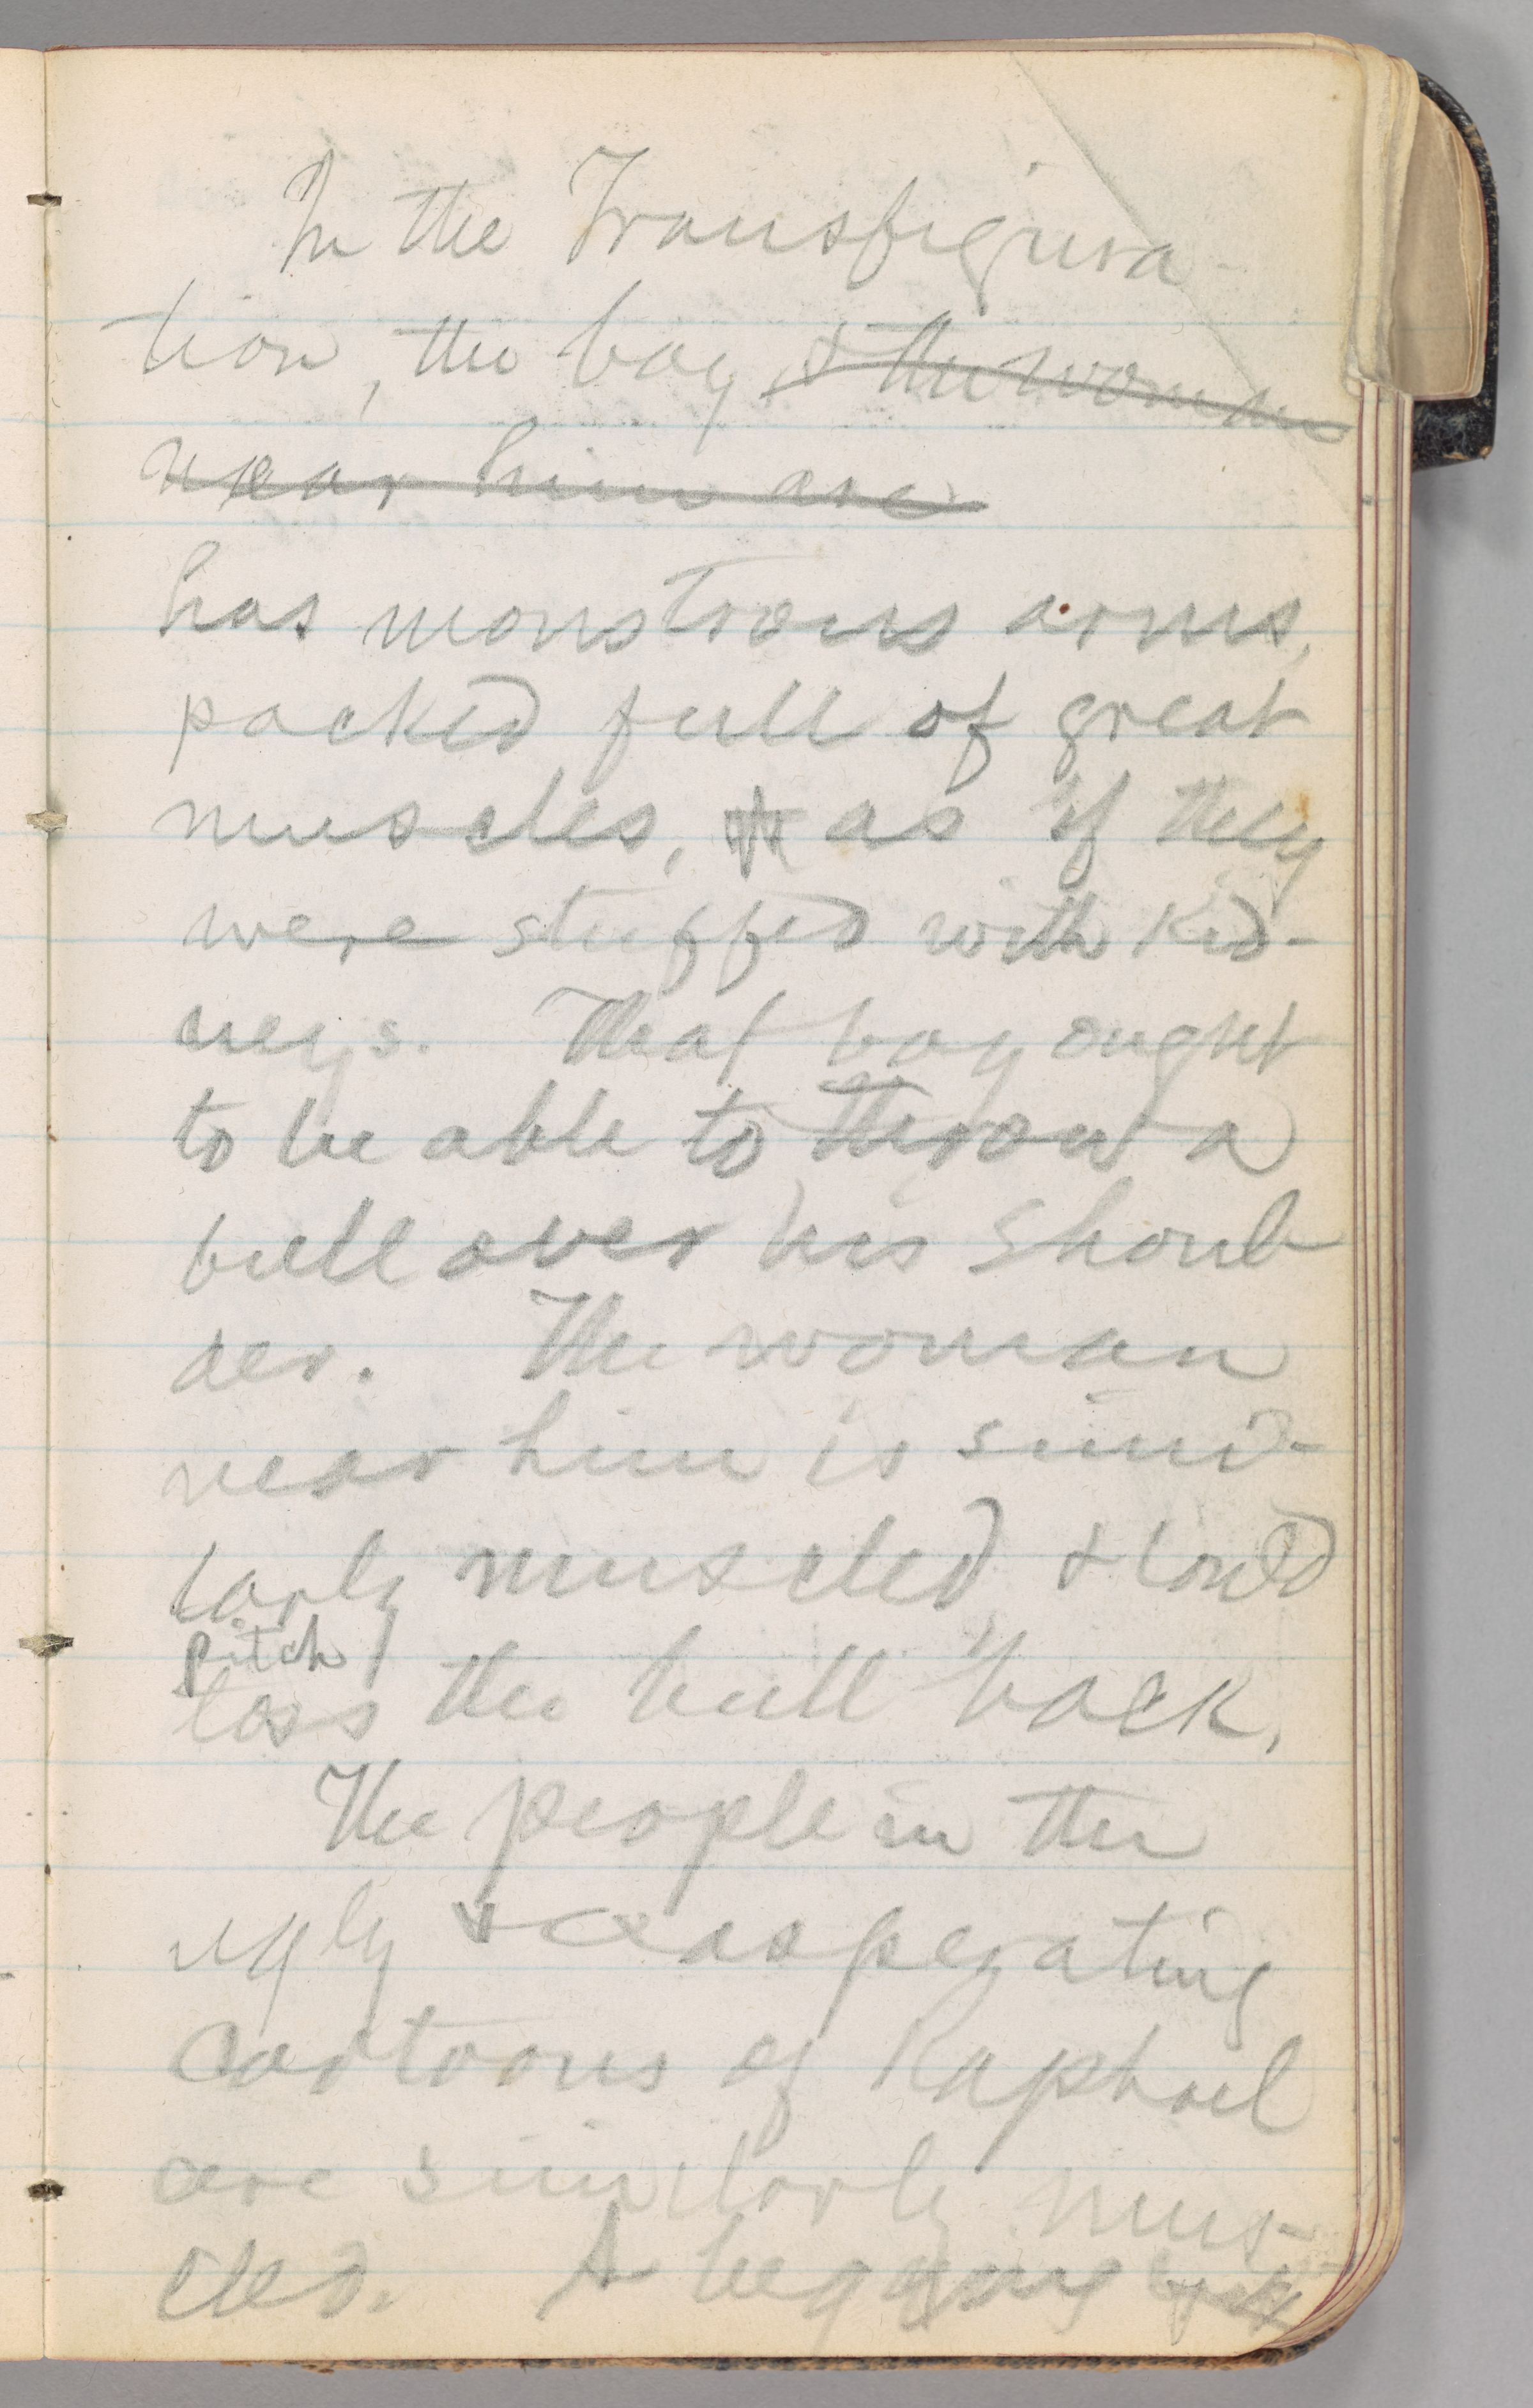 In the Transfigura-
tion, the boy & the woman
near him are
has monstrous arms,
packed full of great
muscles, as if they
were stuffed with kid-
neys. That boy ought
to be able to throw a
bull over his shoul-
der. The woman
near him is simi-
larly muscled, & could
pitch
toss the bull back.
The people in the
ugly & exasperating
cartoons of Raphael
are similarly mus-
cled. A beggar